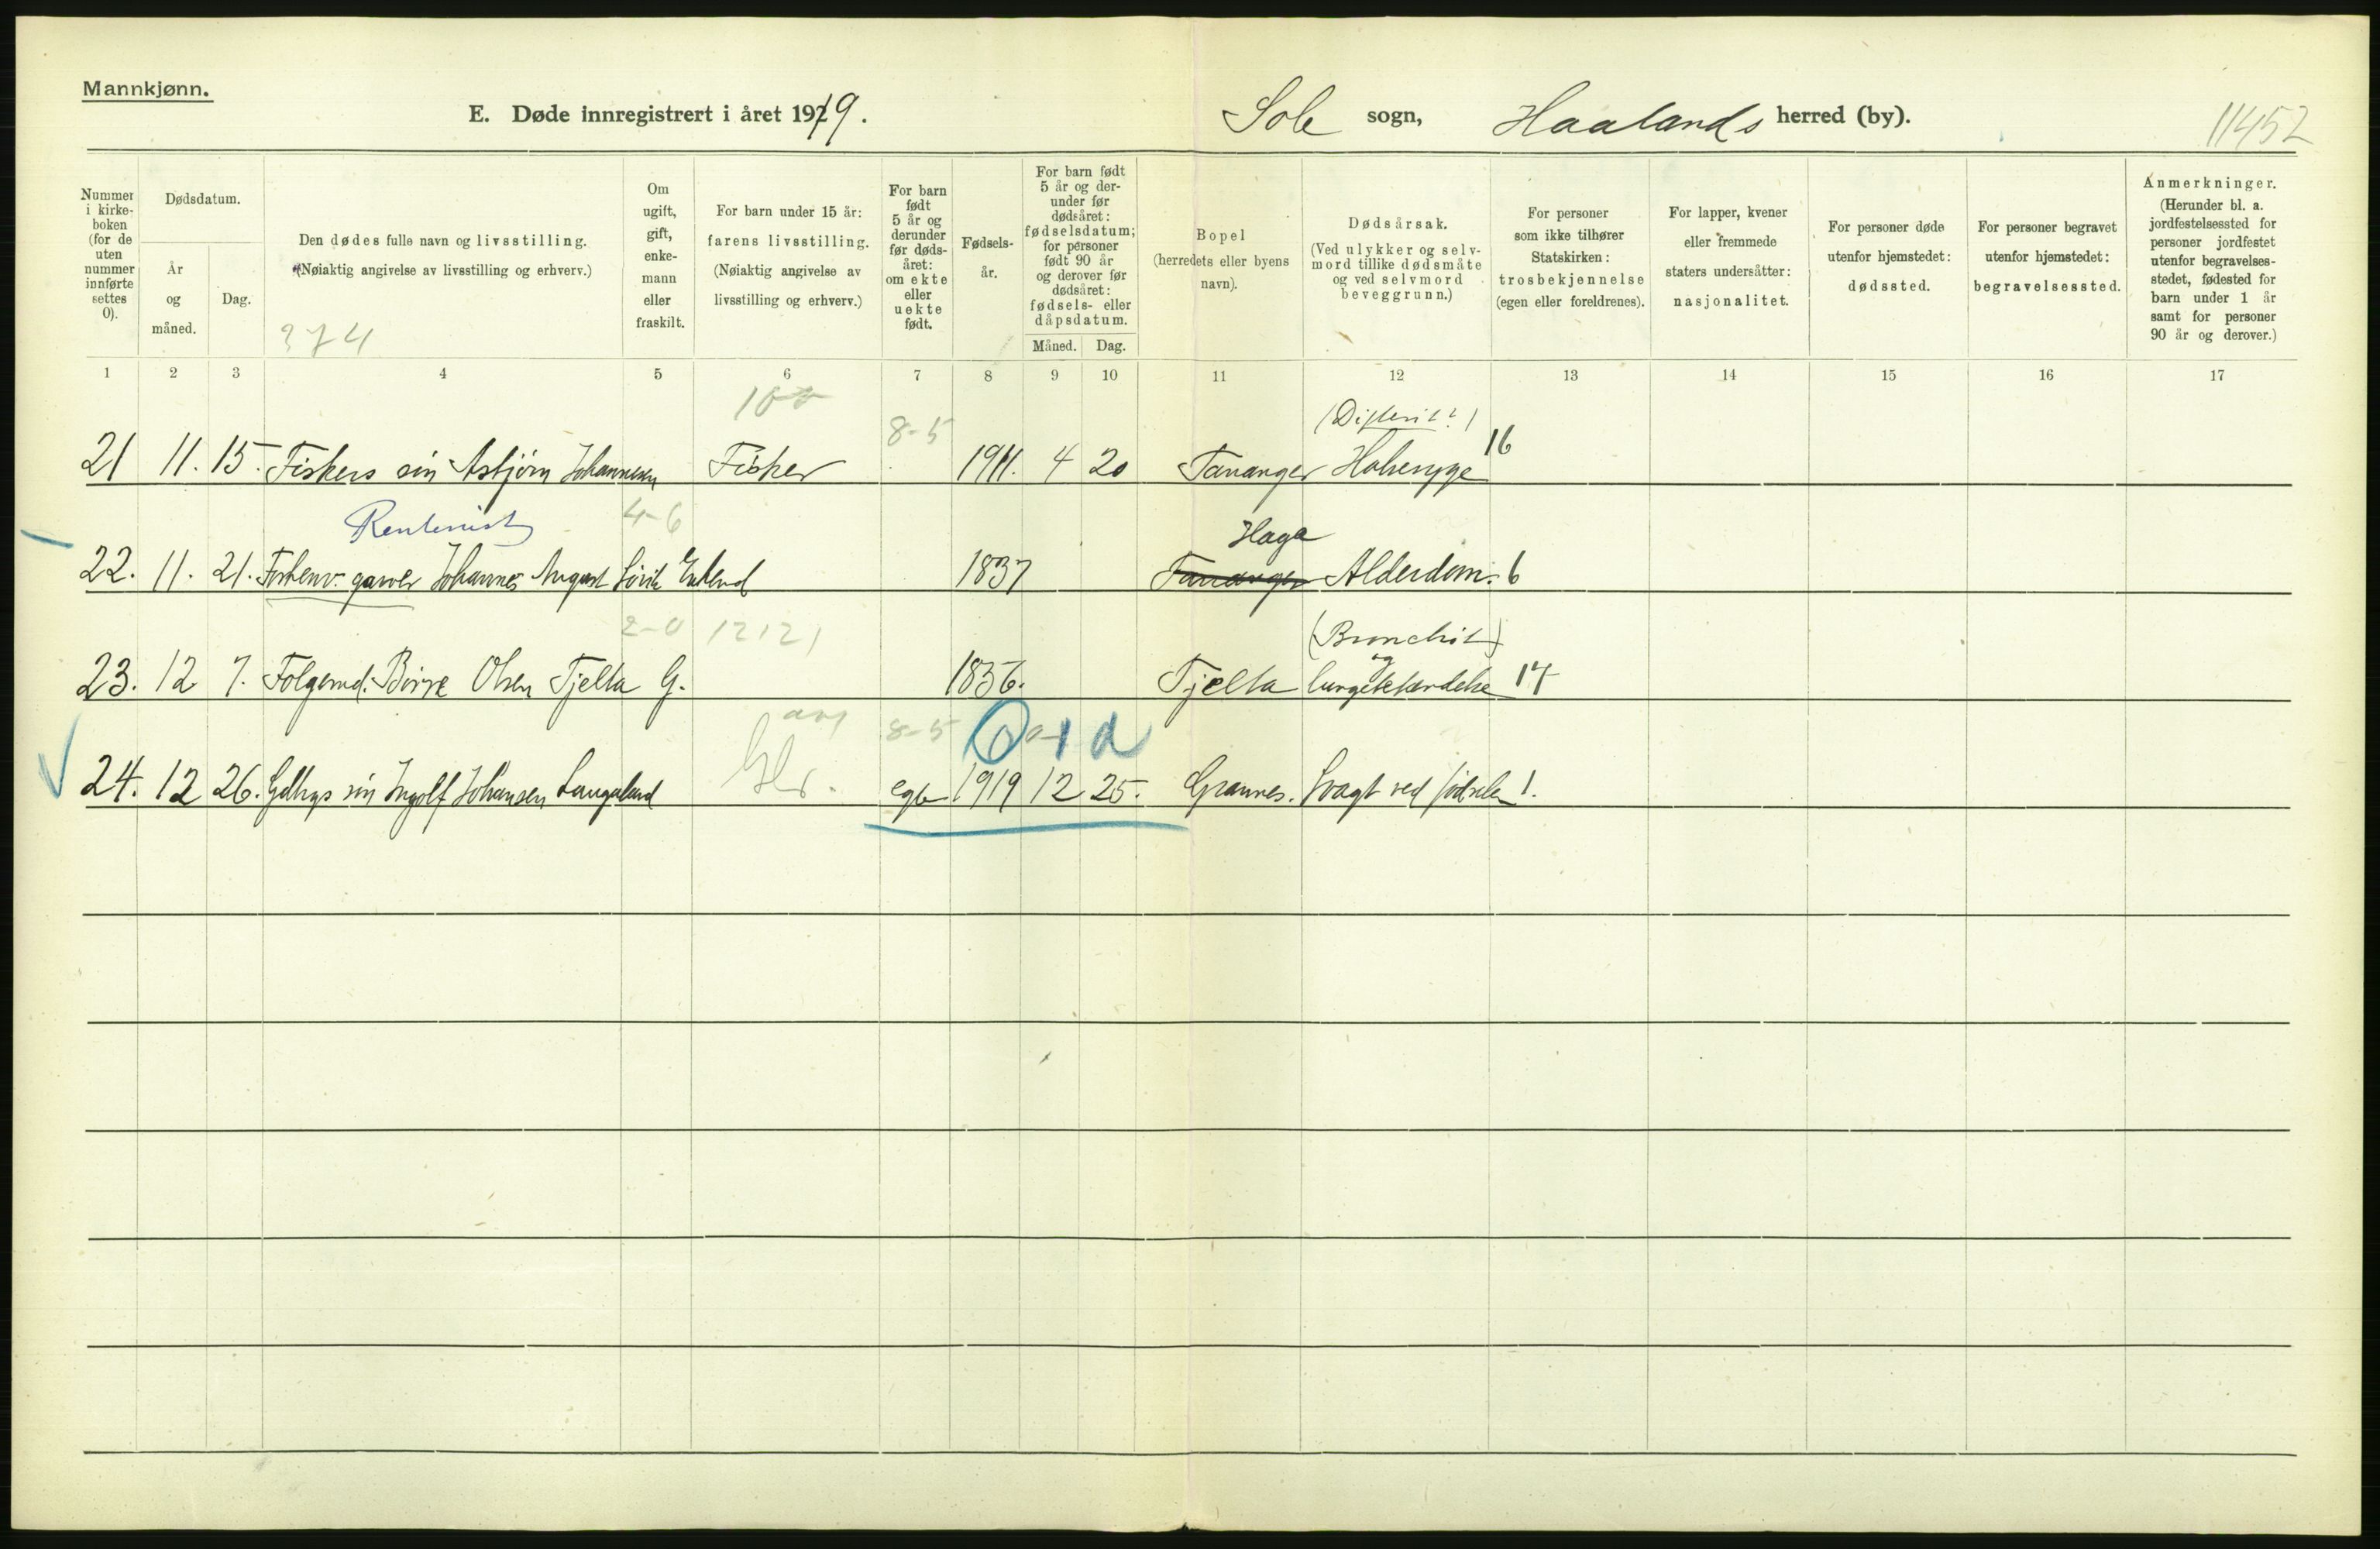 Mannkjønn.
E. Døde innregistrert i året 1919.
Sole sogn, Haalands herred (by).
11452
Nummer i kirke- boken (for de uten nummer innførte settes 0).
Dødsdatum.
År og måned.
Dag.
Den dødes fulle navn og livsstilling.
(Nøiaktig angivelse av livsstilling og erhverv.)
374
Om ugift, gift, enke- mann eller fraskilt.
For barn under 15 år: farens livsstilling.
(Nøiaktig angivelse av livsstilling og erhverv.)
For barn født 5 år og derunder før døds- året: om ekte eller uekte født.
Fødsels- år.
For barn født 5 år og der- under før dødsåret: fødselsdatum; for personer født 90 år og derover før dødsåret: fødsels- eller dåpsdatum.
Måned. Dag.
Bopel (herredets eller byens navn).
Dødsårsak.
(Ved ulykker og selv- mord tillike dødsmåte og ved selvmord beveggrunn.)
For personer som ikke tilhører Statskirken: trosbekjennelse (egen eller foreldrenes).
For lapper, kvener eller fremmede staters undersåtter: nasjonalitet.
For personer døde utenfor hjemstedet: dødssted.
For personer begravet utenfor hjemstedet: begravelsessted.
Anmerkninger.
(Herunder bl. a. jordfestelsessted for personer jordfestet utenfor begravelses- stedet, fødested for barn under 1 år samt for personer 90 år og derover.)
1 2 3 4 5 6 7 8 9 10 11 12 13 14 15 16 17
8-5 (Difterit?)
21 11. 15. Fiskers søn Asbjørn Johannesen Fisker 1911. 4 20 Tananger Halsesyge 16
Rentenist 4-6 Haga
22. 11. 21. Johannes August 1837 Tananger Alderdom. 6
2-0 12121 (Bronchit)
23. 12 7. Folgemd. Børge Olsen Tjelta G. 1836. Tjelta og lungebetændelse 17
8-5 0-1 d
24. 12 26. søn Ingolf Johansen Langeland egte 1919 12 25. Grannes. Svagt ved fødselen 1.